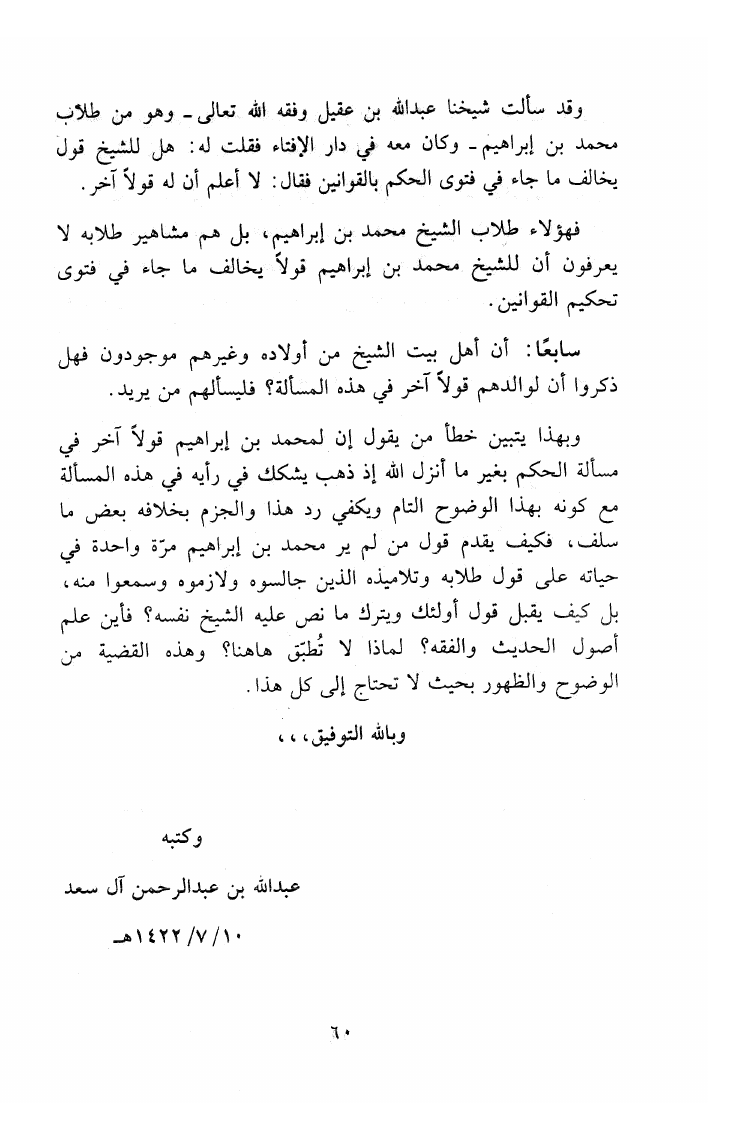 وقد سألت شيخنا عبدالله بن عقيل وفقه الله تعالى - وهو من طلاب
محمد بن إبراهيم - وكان معه في دار الإفتاء فقلت له: هل للشيخ قول
يخالف ما جاء في فتوى الحكم بالقوانين فقال: لا أعلم أن له قولاً آخر.
فهؤلاء طلاب الشيخ محمد بن إبراهيم، بل هم مشاهير طلابه لا
يعرفون أن للشيخ محمد بن إبراهيم قولاً يخالف ما جاء في فتوى
تحكيم القوانين.
سابعًا: أن أهل بيت الشيخ من أولاده وغيرهم موجودون فهل
ذكروا أن لوالدهم قولاً آخر في هذه المسألة؟ فليسألهم من يريد.
وبهذا يتبين خطأ من يقول إن لمحمد بن إبراهيم قولاً آخر في
مسألة الحكم بغير ما أنزل الله إذ ذهب يشكك في رأيه في هذه المسألة
مع كونه بهذا الوضوح التام ويكفي رد هذا والجزم بخلافه بعض ما
سلف، فكيف يقدم قول من لم ير محمد بن إبراهيم مرّة واحدة في
حياته على قول طلابه وتلاميذه الذين جالسوه ولازموه وسمعوا منه،
بل كيف يقبل قول أولئك ويترك ما نص عليه الشيخ نفسه؟ فأين علم
أصول الحديث والفقه؟ لماذا لا تُطبّق هاهنا؟ وهذه القضية من
الوضوح والظهور بحيث لا تحتاج إلى كل هذا.
وبالله التوفيق،،،
وكتبه
عبدالله بن عبدالرحمن آل سعد
١٤٢٢/٧/١٠هـ
٦٠